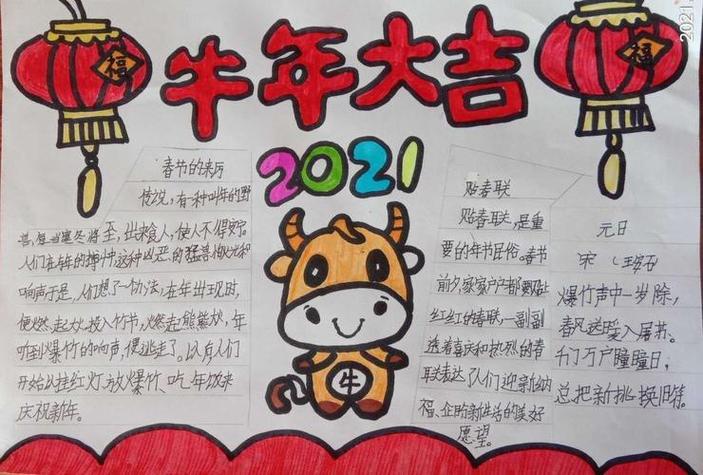 牛年大吉
2021
福
福
2021.
春节的来历
传说，有一种叫年的野
兽，每当寒冬将至，出来食人，使人不得安宁。
人们在与年的搏斗中,这种凶恶的猛兽怕火光和
响声于是，人们想了一办法，在年出现时，
便燃起火，投入竹节，燃起熊熊火，年
听到爆竹的响声，便逃走了。以后人们
开始以挂红灯、放爆竹、吃年饭来
庆祝新年。
牛
贴春联
贴春联，是重
要的年节民俗。春节
前夕，家家户户都要贴
红红的春联，一副副
透着喜庆和热烈的春
联表达了人们迎新纳
福、企盼新生活的美好
愿望。
元日
宋 王安石
爆竹声中一岁除，
春风送暖入屠苏。
千门万户瞳瞳日，
总把新桃换旧符。